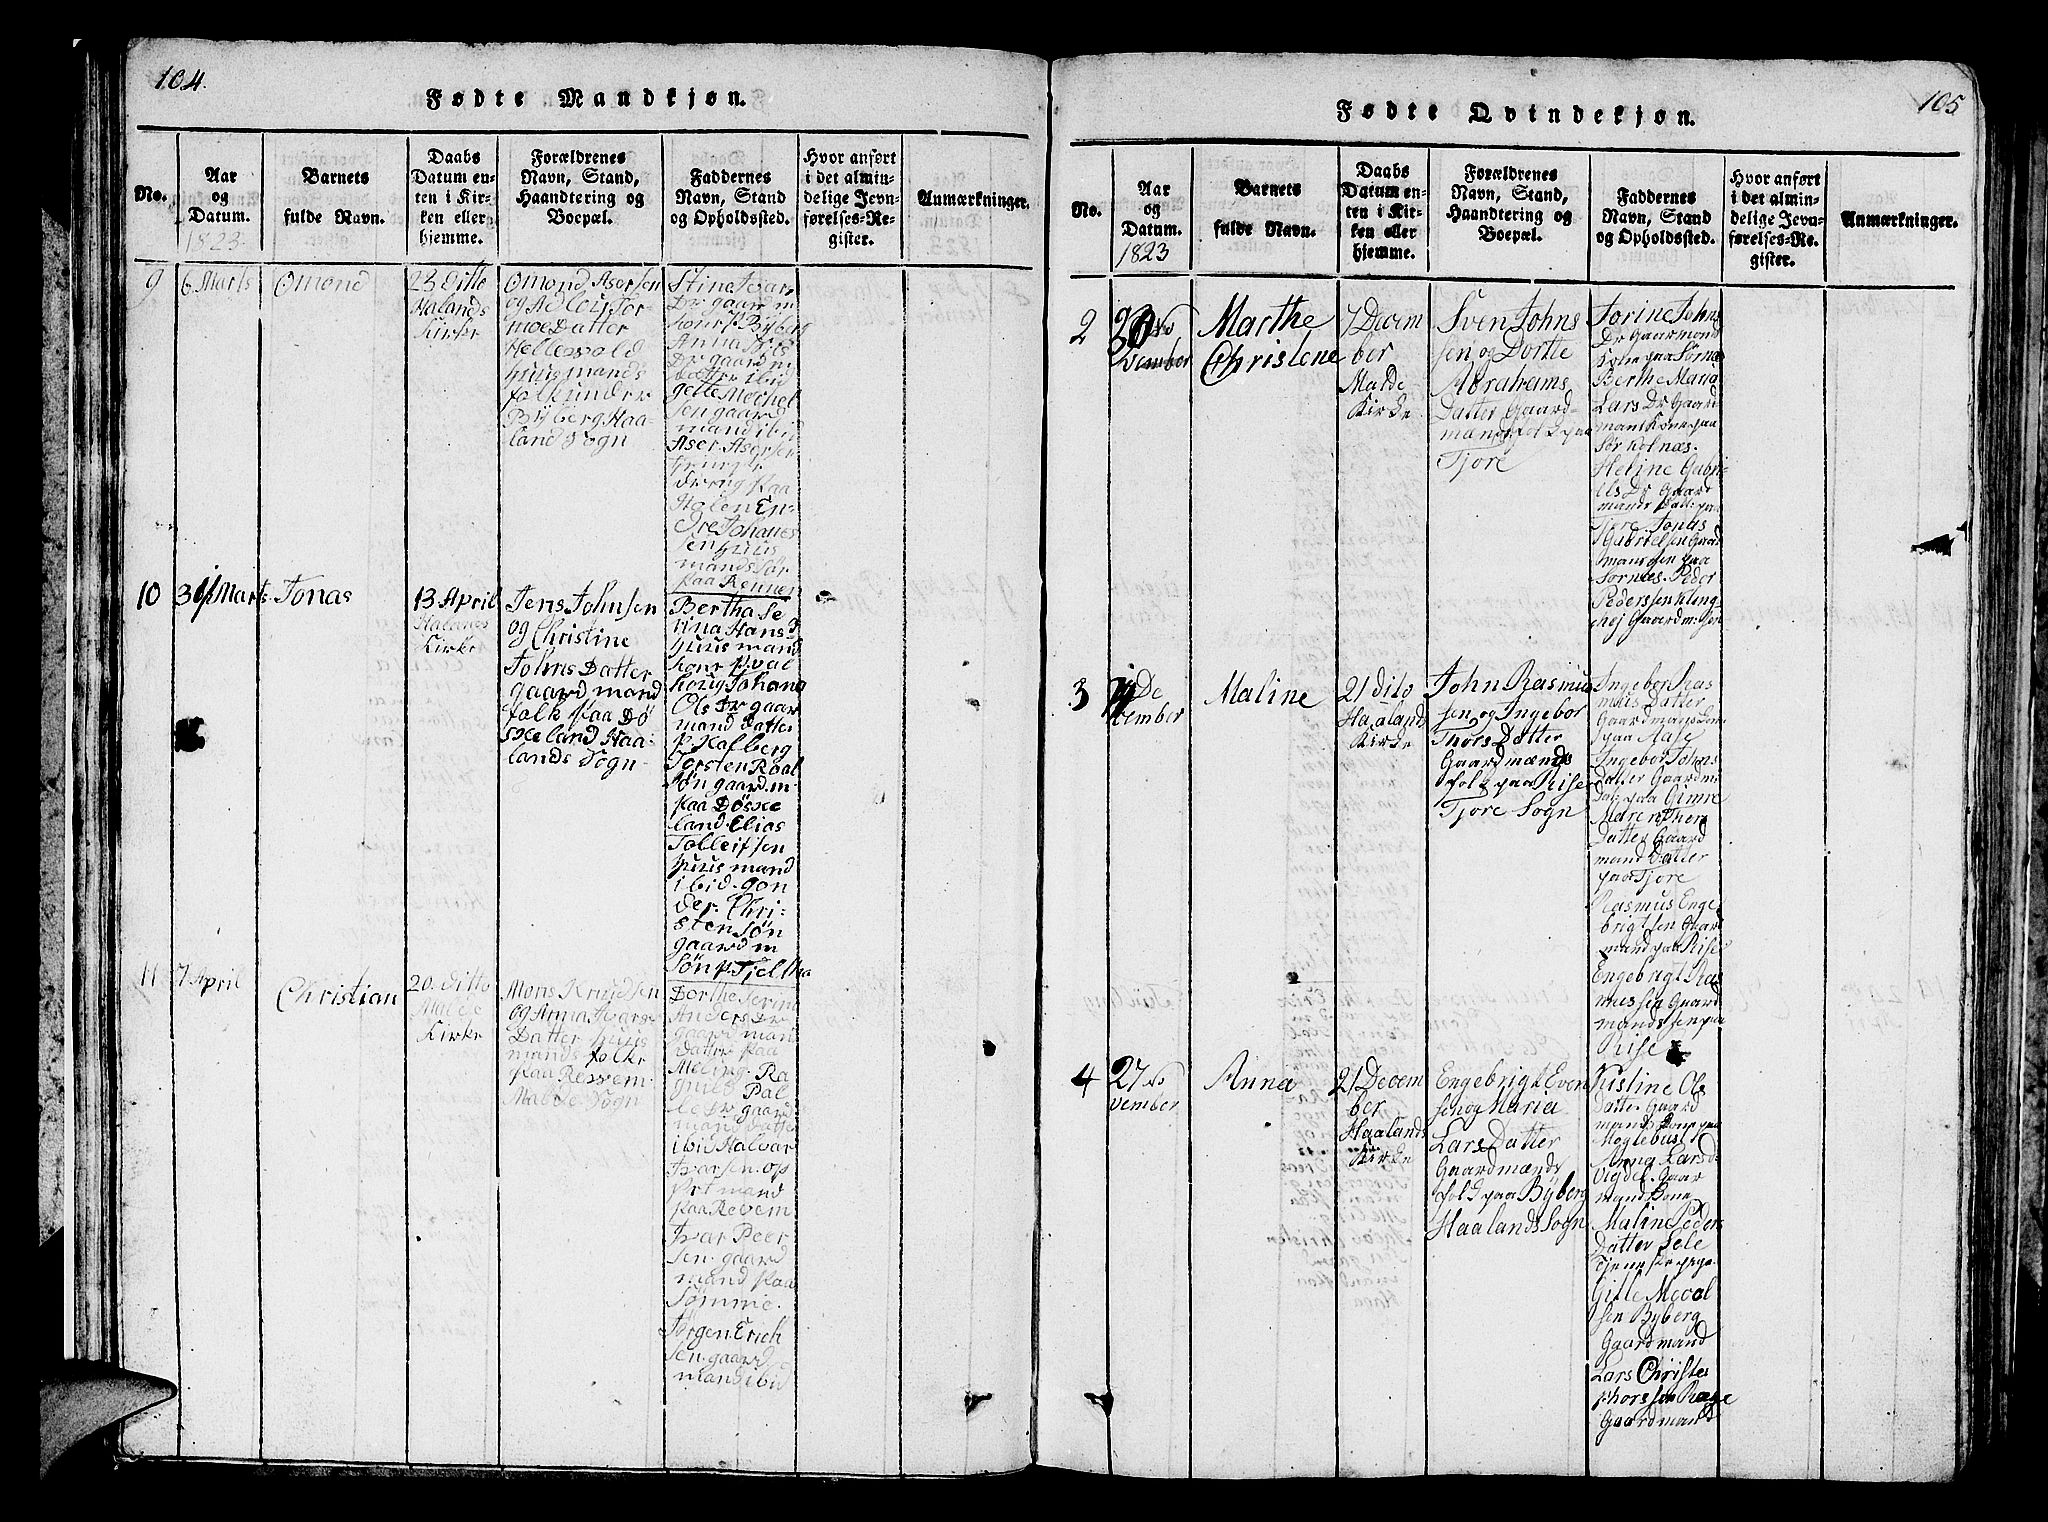 104.
Fødte Mandkjøn.
No.
Aar
og
Datum.
1823.
Barnets
fulde Navn.
Daabs
Datum en-
ten i Kir-
ken eller
hjemme.
Forældrenes
Navn, Stand,
Haandtering og
Boepæl.
Faddernes
Navn, Stand
og Opholdssted.
Hvor anført
i det almin-
delige Jevn-
førelses-Re-
gister.
Anmærkninger.
9
6 Marts
Omond
23 Ditto
Halands
Kirke
Omond Asersen
og
Datter
Hellevold
huusmands
folk under
Byberg Haa-
land Sogn
Stina Ivar
Dr gaarm
kone p Byberg
Anna
Dr gaard m
Datter ibid
gitte Mechel
sen gaard
mand ibid
Aser Asersen
dreng paa
Halen En-
dre Johanes
sen huus
mands
paa Rennen
10
31 Marts
Jonas
13 April
Halands
Kirke
Jens Johnsen
og Christine
Johns Datter
gaard mand
folk paa Dö
skeland Haa-
lands Sogn
Bertha Se
rina Hans D
huusmand
kone p. val
houg Johana
Ols Dr gaar
mand datter
p Kalberg
Torsten Roal
søn gaard m
paa Døske
land Elias
Tolleifsen
huusmand
ibid. gon
der. Chri-
sten søn
gaard m
søn p. Tjeltha
11
7 April
Christian
20. Ditto
Malde
Kirke
Mons Knudsen
og Anna Ivars
Datter huus
mands folke
paa Revem
Malde Sogn
Dorthe Serina
Anders Dr
gaard mand
datter paa
Meling. Ra
gnild Pal
le Dr gaard
mand datter
ibid Halvar
Ivarsen. op
mand
paa Revem
Ivar Peer
sen. gaard
mand paa
Sömme.
Jørgen Erich
sen. gaard
mand ibid
105
Fødte Qvindekjøn.
No.
Aar
og
Datum.
1823
Barnets
fulde Navn.
Daabs
Datum en-
ten i Kir-
ken eller
hjemme.
Forældrenes
Navn, Stand,
Haandtering og
Boepæl.
Faddernes
Navn, Stand
og Opholdssted.
Hvor anført
i det almin-
delige Jevn-
førelses-Re-
gister.
Anmærkninger.
2
30 No
vember
Marthe
Christene
7 Decem
ber
Malde
Kirke
Sven Johns
sen og Dortte
Abrahams
Datter Gaard-
mænds folk paa
Tjore
Torine Johns
Dr Gaarmand
Kone paa Søma
Berthe Maria
Lars Dr Gaard
mans Kone paa
Sør Kolnæs.
Heline Gabri-
els Dr Gaard
mands Dat: paa
Tjore Jonas
Gabrielsen Gaard
mandsen paa
Sornes. Peder
Pederssen Kling
hej Gaardm: sen
3
De
cember
Maline
21 dito
Haaland
Kirke
John Rasmus
sen og Ingebor
Thors Datter
Gaardmænds
folk paa Riser
Tjore Sogn
Ingebor Ras
mus Datter
Gaardmans
paa Aase
Ingebor Johns
Datter Gaardm:
Dat: paa Gimre
Maren Ther
Datter Gaard
mand Datter
paa Tjore
Rasmus Enge
brigtsen Gaar
mand paa Rise
Engebrigt Ras
mussen Gaard
mands sen paa
Rise
4
27 No
vember
Anna
21 Decem
ber
Haalands
Kirke
Engebrigt Even
sen og Maria
Lars Datter
Gaardmænds
folk paa Byberg
Haalands Sogn
Kistine Ols
Datter Gaard
mands kone paa
Meglebust
Anna Lars D
Vigdel Gaar
mand Kone
Maline Peders
Datter Sele
Gitte Mecal
sen Byberg
Gaardmand
Lars Christes
phorssen Ræge
Gaardmand